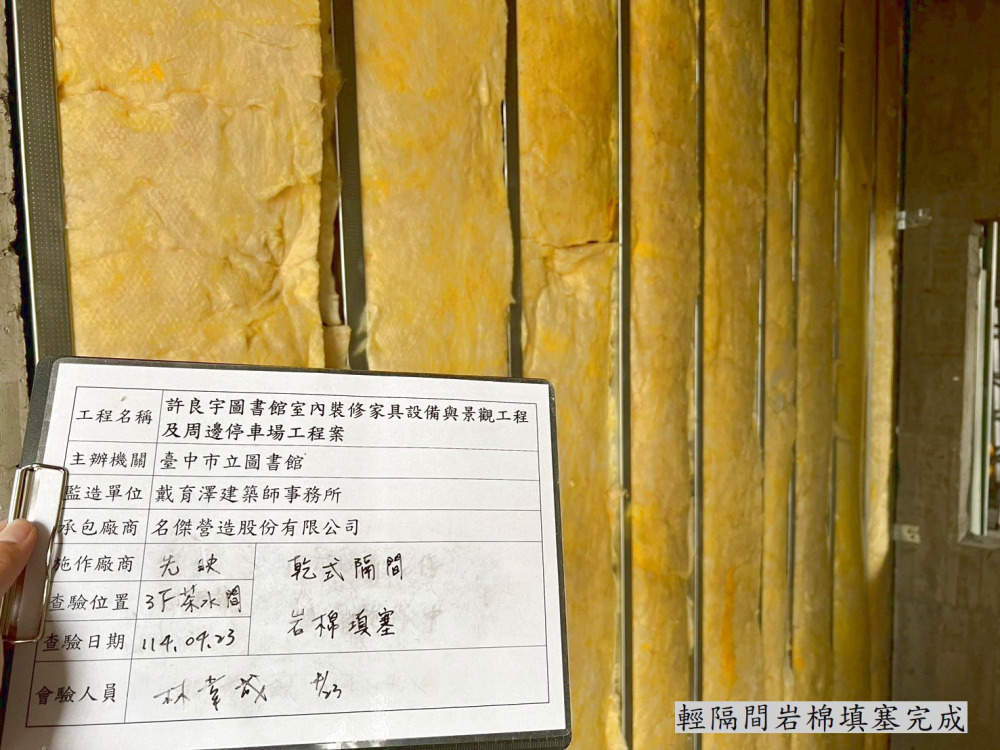 工程名稱 許良宇圖書館室內裝修家具設備與景觀工程
及周邊停車場工程案
主辦機關 臺中市立圖書館
監造單位 戴育澤建築師事務所
承包廠商 名傑營造股份有限公司
施作廠商 先
乾式隔間
查驗位置 3F茶水間
岩棉填塞
查驗日期 114.04.23
會驗人員 林 4/23
輕隔間岩棉填塞完成